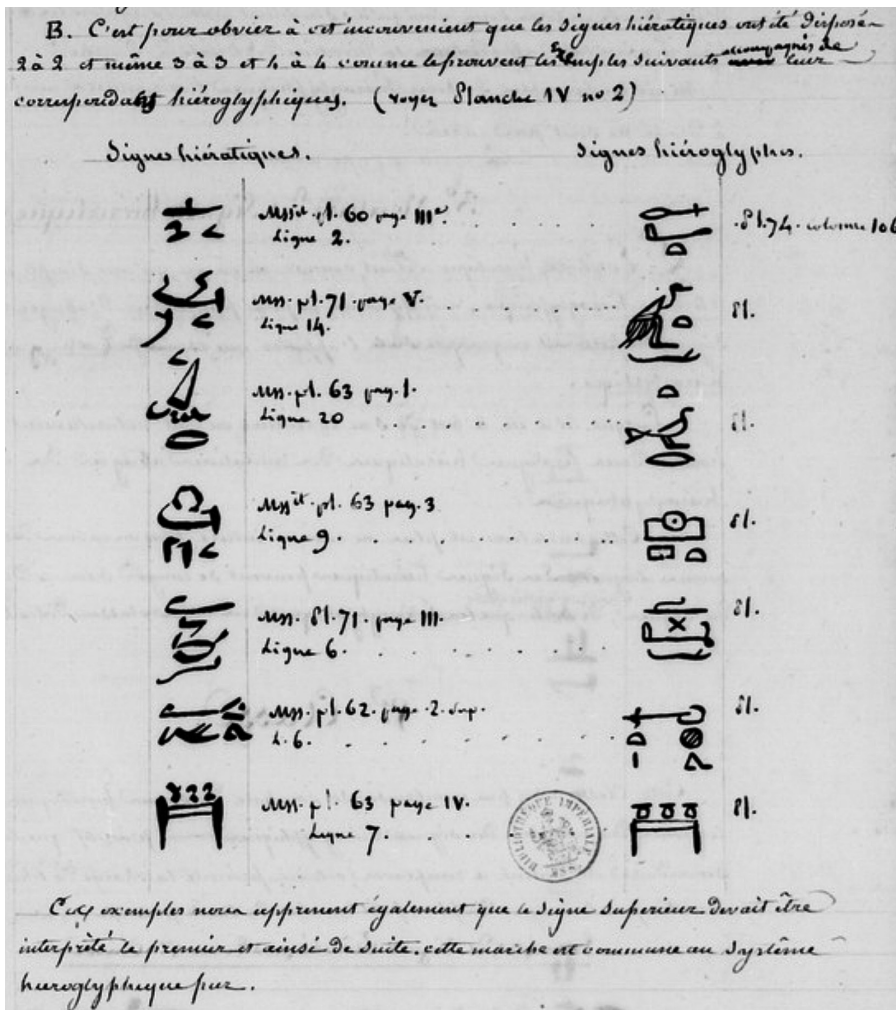 B. C'est pour obvier à cet inconvenient que les signes hiératiques ont été disposé
2 à 2 et même 3 à 3 et 4 à 4 comme le prouvent les Exemples suivants accompagnés de leur
correspondants hiéroglyphiques. (voyez Planche IV no 2)
Signes hiératiques. Signes hiéroglyphes.
Mssit. pl. 60 page IIIe. . . . . . . pl. 74. colonne 106
Ligne 2.
Mss. pl. 71. page V. pl.
Ligne 14.
Mss. pl. 63 pag. 1. pl.
Ligne 20
Mssit. pl. 63 pag. 3 pl.
Ligne 9.
Mss. Pl. 71. page III. pl.
Ligne 6.
Mss. pl. 62. page 2. sup. pl.
L. 6.
Mss. pl. 63 page IV. pl.
Ligne 7.
BIBLIOTHÈQUE IMPÉRIALE MSS.
Ces exemples nous apprennent également que le signe superieur devait être
interprété le premier et ainsi de suite. cette marche est commune au système
hieroglyphique pur.